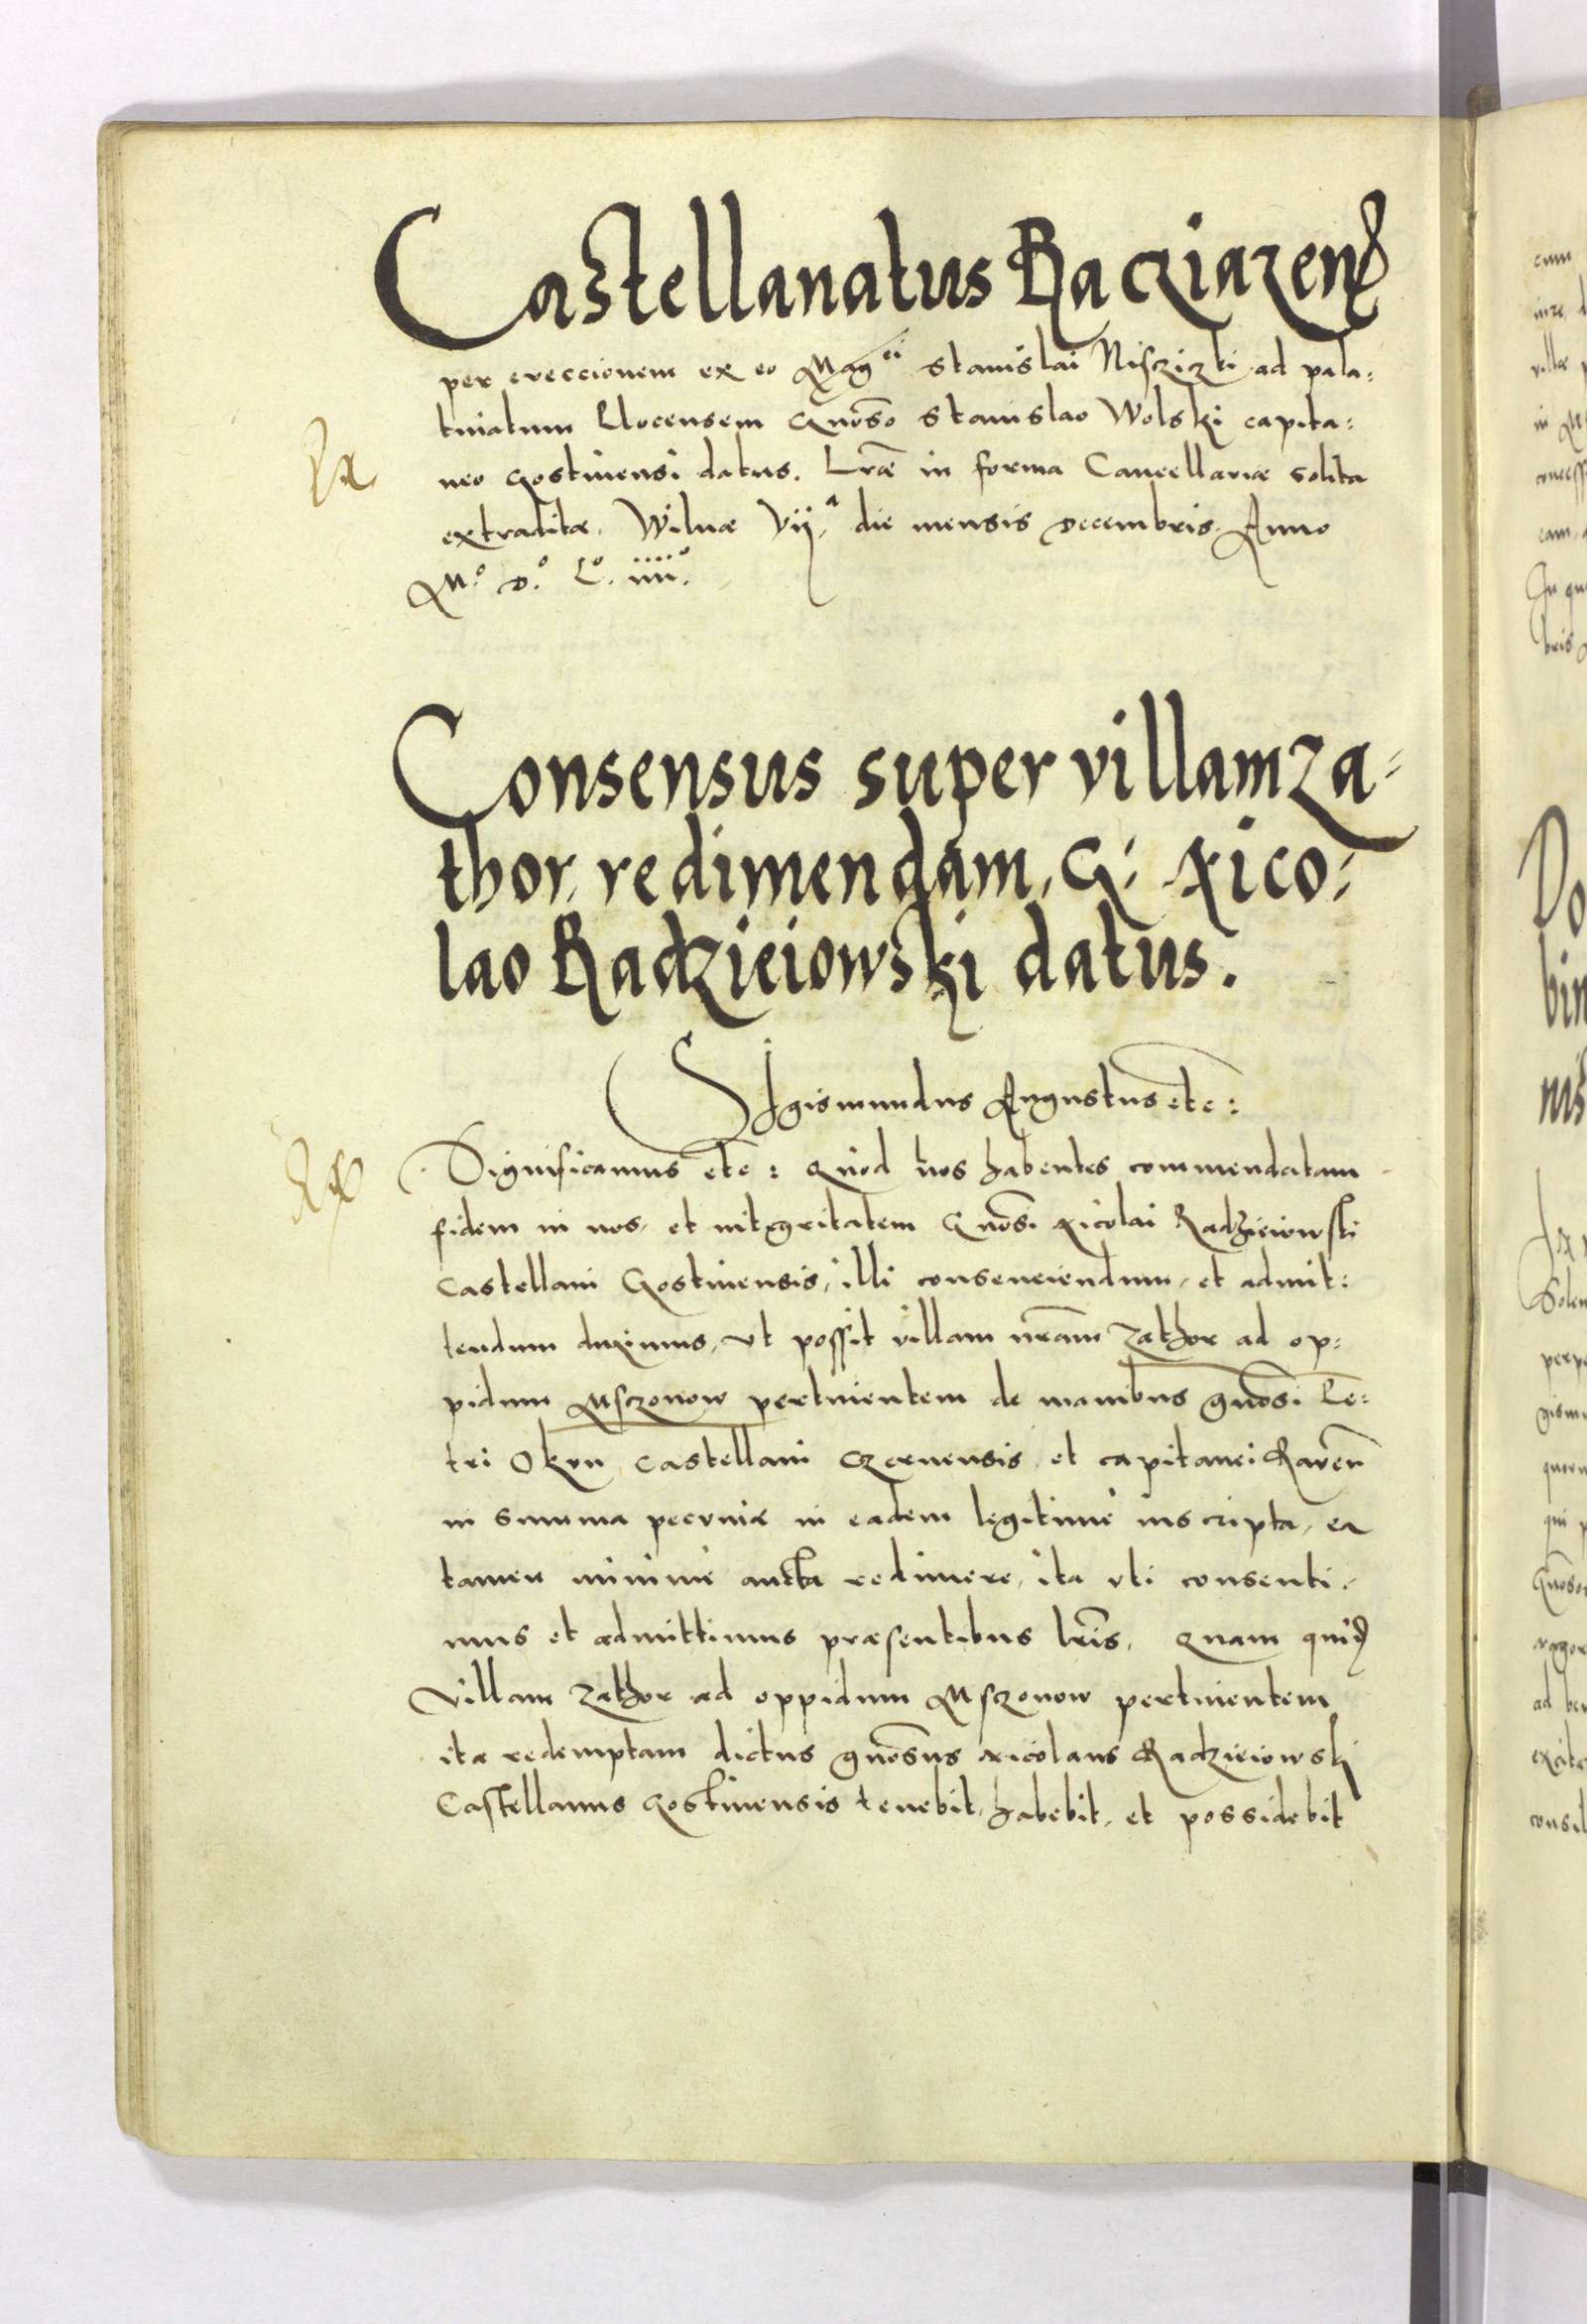 Castellanatus Racziazens
per ereccionem ex eo Mag^ci Stanislai Nisczizki ad pala=
tinatum Plocensem Gnoso Stanislao Wolski capita=
neo Gostinensi datus. Lræ in forma Cancellariæ solita
extraditæ. Wilnæ Vij^a die mensis Decembris Anno
M° D.° L°. iiii°.
Consensus super villam Za=
thor, redimendam, G: Nico=
lao Radzieiowski datus.
Sigismundus Augustus etc:
Significamus etc: Quod nos habentes commendatam
fidem in nos, et integritatem Gnosi Nicolai Radzieiowski
Castellani Gostinensis, illi consenciendum, et admit:
tendum duximus, ut possit villam nram Zathor ad op=
pidum Msczonow pertinentem de manibus gnosi Pe=
tri Okvn Castellani Czernensis et capitanei Raven
in summa pecuniæ in eadem legitime inscripta, ea
tamen minime aucta redimere, ita uti consenti=
mus et admittimus præsentibus lris. Quam quid
Villam Zathor ad oppidum Msczonow pertinentem
ita redemptam dictus gnosus Nicolaus Radzieiowski
Castellanus Gostinensis tenebit, habebit, et possidebit